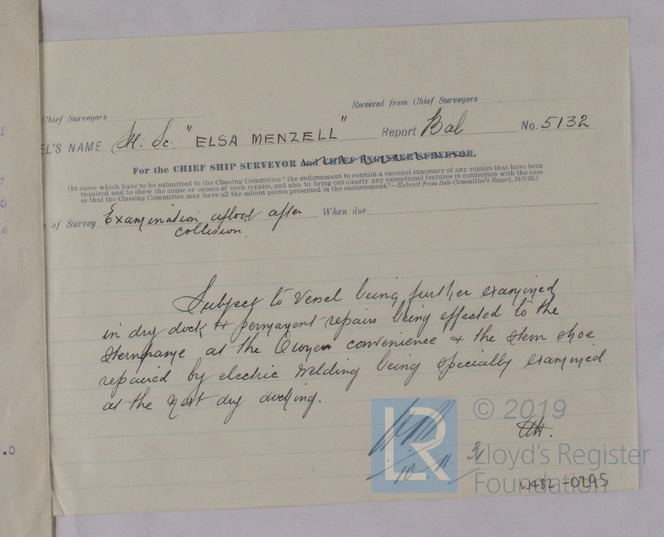 Chief Surveyors
Received from Chief Surveyors
EL'S NAME "ELSA MENZELL" Report Bal No. 5132
For the CHIEF SHIP SURVEYOR and CHIEF ENGINEER SURVEYOR.
(In cases which have to be submitted to the Classing Committee" the endorsement to contain a succinct summary of any repairs that have been
required and to show the cause or causes of such repairs, and also to bring out clearly any exceptional features in connection with the case
so that the Classing Committee may have all the salient points presented in the endorsement."—Extract from Sub-Committee's Report,
of Survey Examination afloat after When due
collision.
Subject to Vessel being further examined
in dry dock & permanent repairs being effected to the
at the Owners convenience & the stem shoe
repaired by electric welding being specially examined
at the next dry docking.
LR © 2019
Lloyd's Register
Foundation
W482-0295